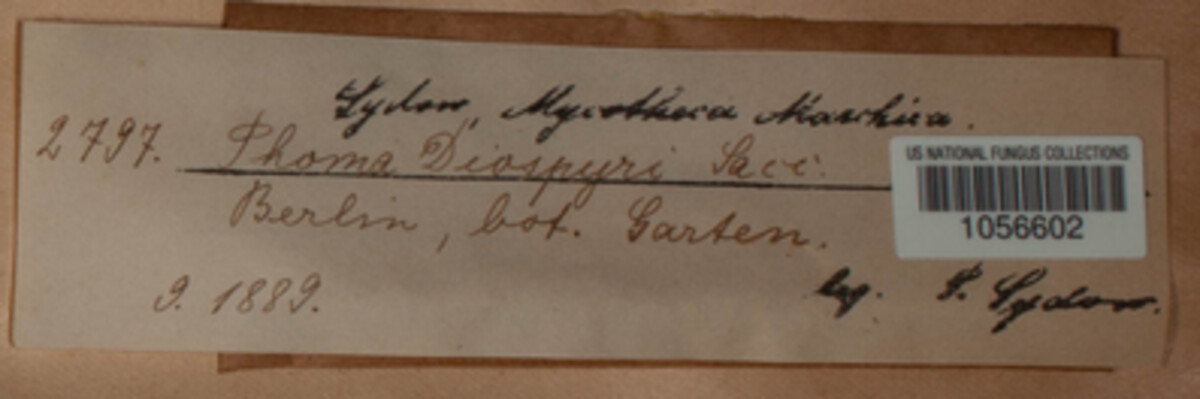 Sydow, Mycotheca Marchica.
2797. Phoma Diospyri Sacc.
Berlin, bot. Garten.
9. 1889.
leg. P. Sydow.
US NATIONAL FUNGUS COLLECTIONS
1056602